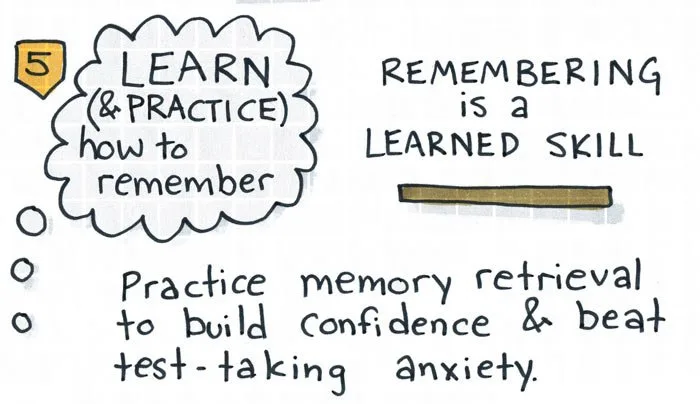 5
LEARN
(& PRACTICE)
how to
remember
REMEMBERING
is a
LEARNED SKILL
Practice memory retrieval
to build confidence & beat
test-taking anxiety.